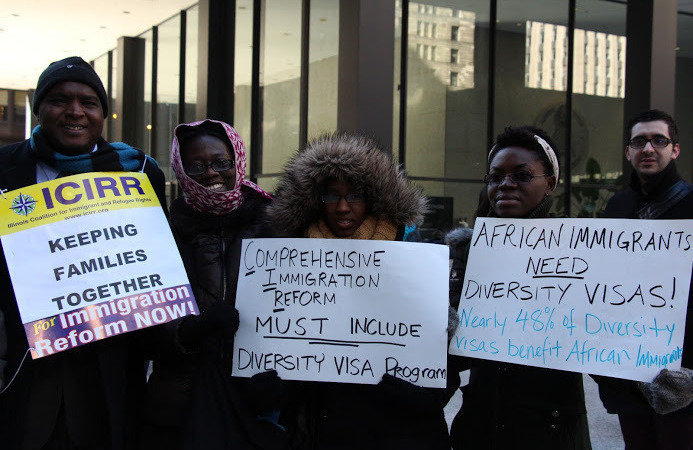 ICIRR
Illinois Coalition for Immigrant and Refugee Rights
www.icirr.org
KEEPING
FAMILIES
TOGETHER
For Immigration
Reform NOW!
COMPREHENSIVE
IMMIGRATION
REFORM
MUST INCLUDE
DIVERSITY VISA Program
AFRICAN IMMIGRANTS
NEED
DIVERSITY VISAS!
Nearly 48% of Diversity
visas benefit African Immigrants